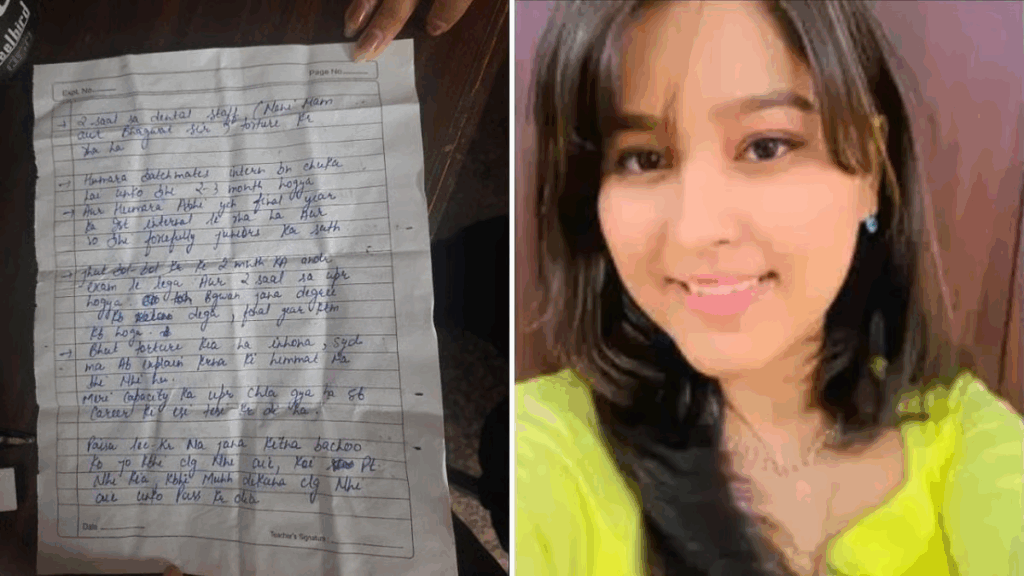 Page No.
Expt. No.
→ 2 saal sa dental staff (Nani Mam
aur Bhagwat sir torture kr
rha ha
→ Humara batchmates intern bn chuka
hai unko bhe 2-3 month hogya
→ Aur Humara Abhi yeh final year
ka 1st internal le rha ha Aur
so bhe forcefully juniors Ka sath
→ jhut bol bol ke ke 2 month KA andr
exam le lega Aur 2 saal sa upr
hogya. Bgwan jana degree
Kb dega, final year kem
Kb hoga.
→ Bhut torture kia ha inhona,
ma Ab explain krna ki himmat na
bhe Nhi hu.
Meri capacity Ka upr chla gya ha
career ki
Paisa lee Kr Na jana Kitna bachoo
Ko jo kbhe clg Nhe aie, Koi Pt.
Nhe kia kbhi Muhh dikana clg Nhe
aie unko Pass Kr dia.
Date
Teacher's Signature